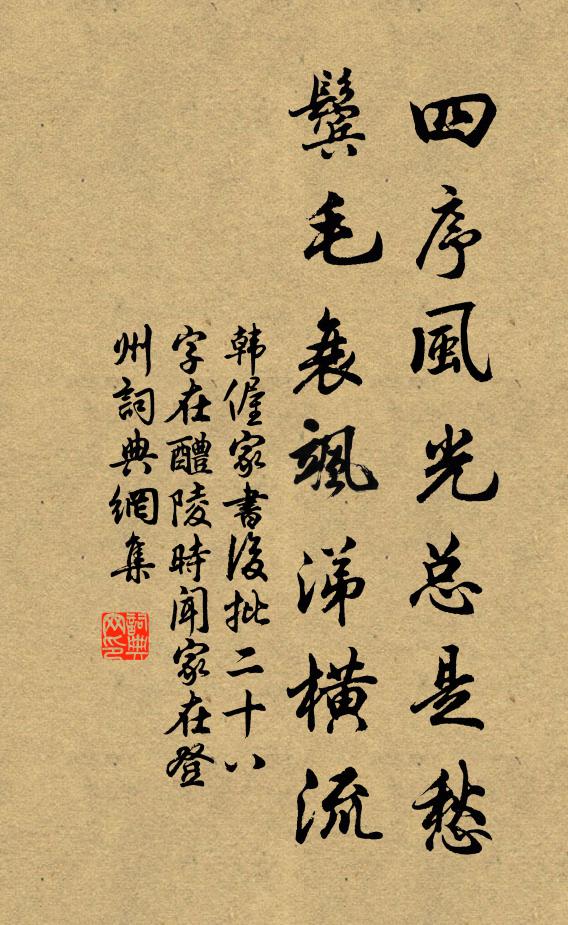 四序風光总是愁
鬓毛衰颯涕橫流
韩偓家書後批二十八
字在醴陵時闻家在登
州詞典網集
詞典网印